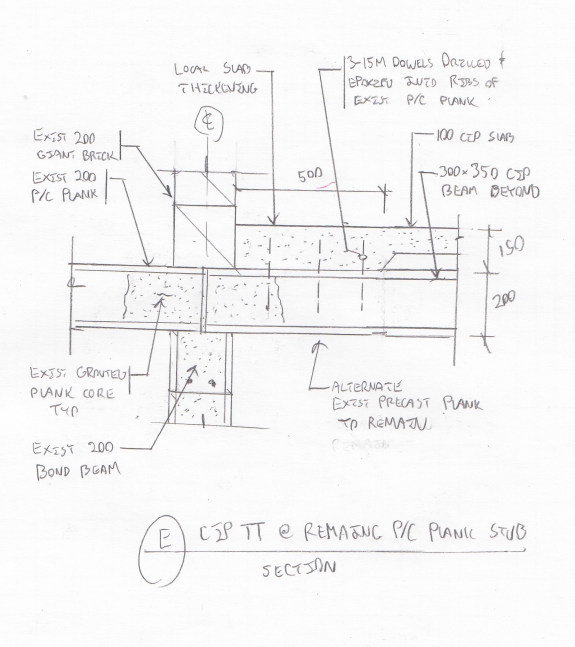 LOCAL SLAB
THICKENING
3-15M DOWELS DRILLED &
EPOXIED INTO RIBS OF
EXIST P/C PLANK
℄
EXIST 200
GIANT BRICK
EXIST 200
P/C PLANK
500
100 CIP SLAB
300x350 CIP
BEAM BEYOND
150
200
EXIST GROUTED
PLANK CORE
TYP
EXIST 200
BOND BEAM
ALTERNATE
EXIST PRECAST PLANK
TO REMAIN
REMAIN
E CIP TT @ REMAING P/C PLANK STUB
SECTION